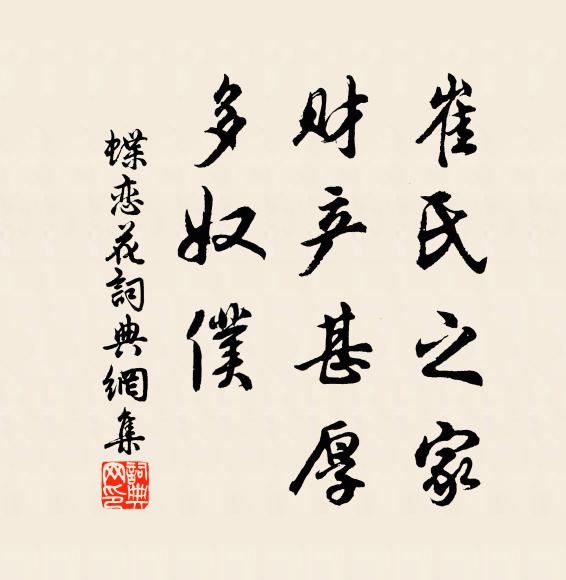 崔氏之家
财产甚厚
多奴僕
蝶恋花詞典網集
詞典网印